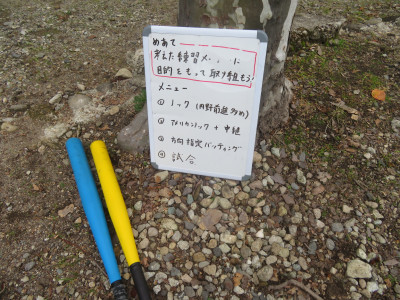 めあて
考えた練習メニューに
目的をもって取り組もう!
メニュー
① ノック(内野前進多め)
② アメリカンノック + 中継
③ 方向指定バッティング
④ 試合